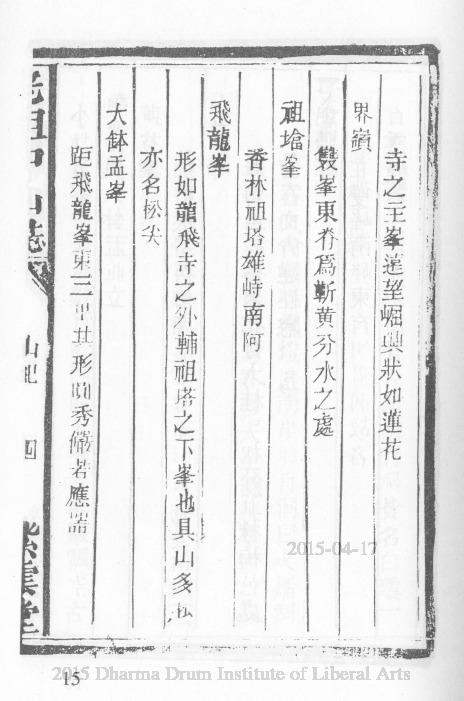 寺之主峯遠望崛興狀如蓮花
界嶺
雙峯東脊爲蘄黃分水之處
祖塔峯
香林祖塔雄峙南阿
飛龍峯
形如龍飛寺之外輔祖塔之下峯也具山多松
亦名松尖
大鉢盂峯
距飛龍峯東三里其形圓秀儼若應器
老祖山志
山紀
四
紫雲堂
2015-04-17
15
2015 Dharma Drum Institute of Liberal Arts